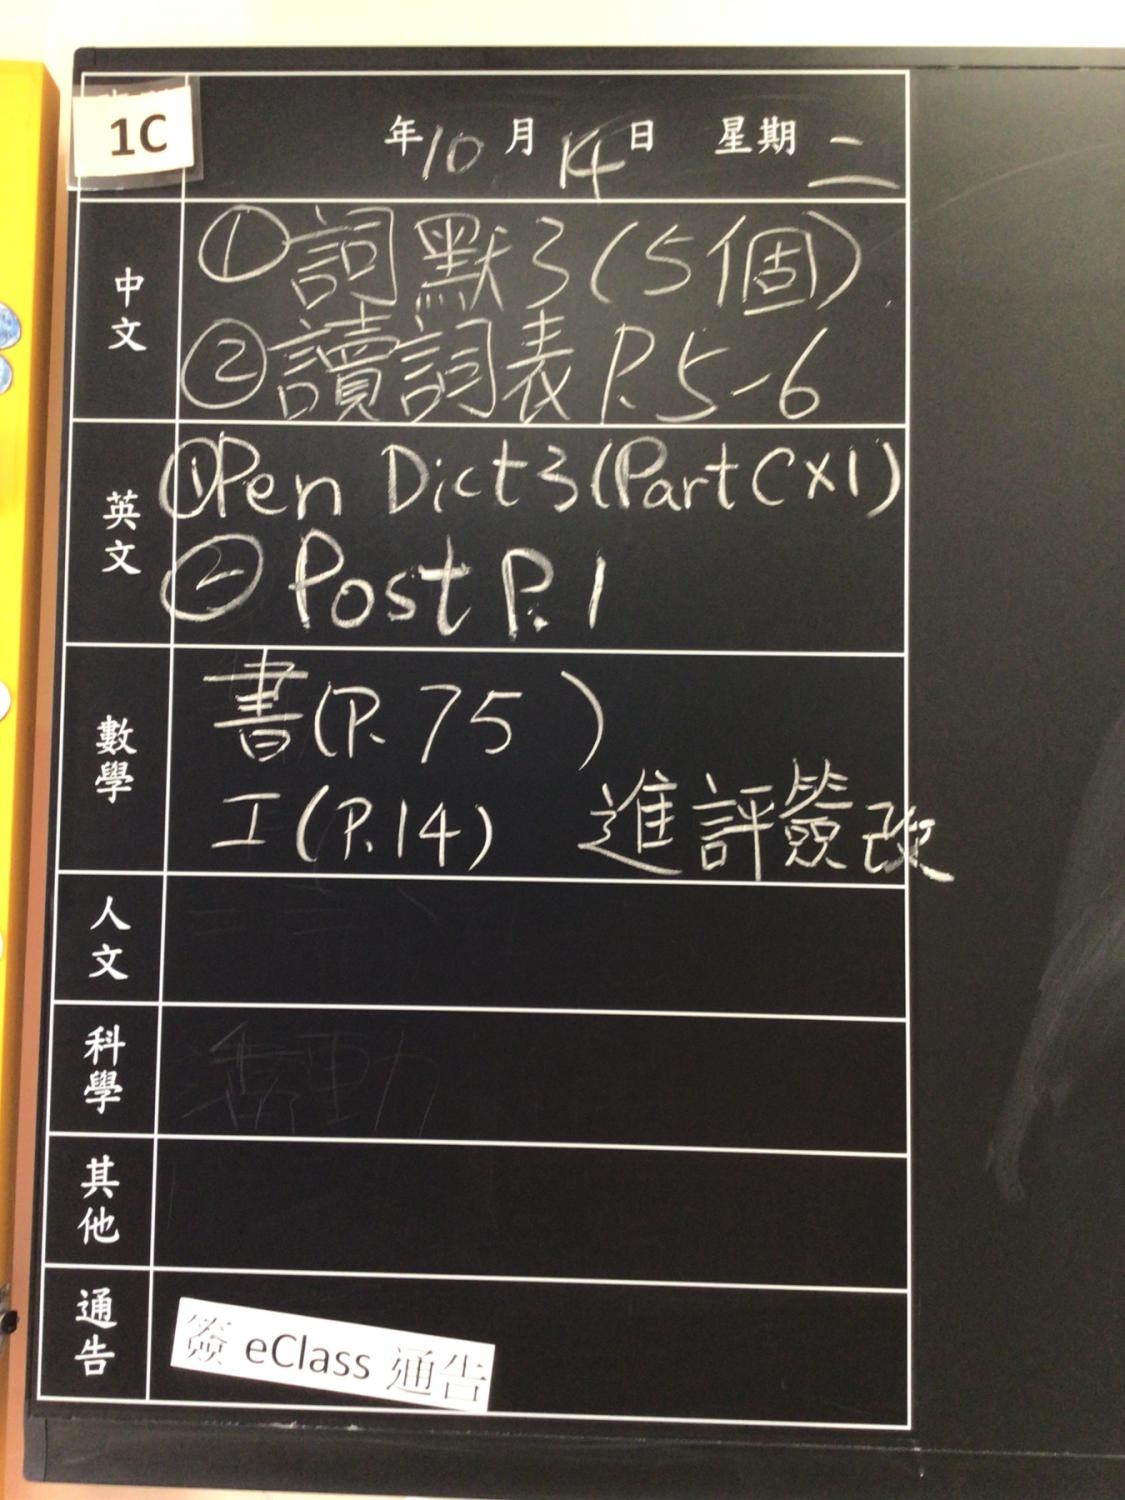 1C
年10月14日 星期二
中文
①詞默3(5個)
②讀詞表P.5-6
英文
①Pen Dict 3(Part C×1)
②Post P.1
數學
書(P.75)
工(P.14) 進評簽改
人文
科學
活動
其他
通告
簽 eClass 通告